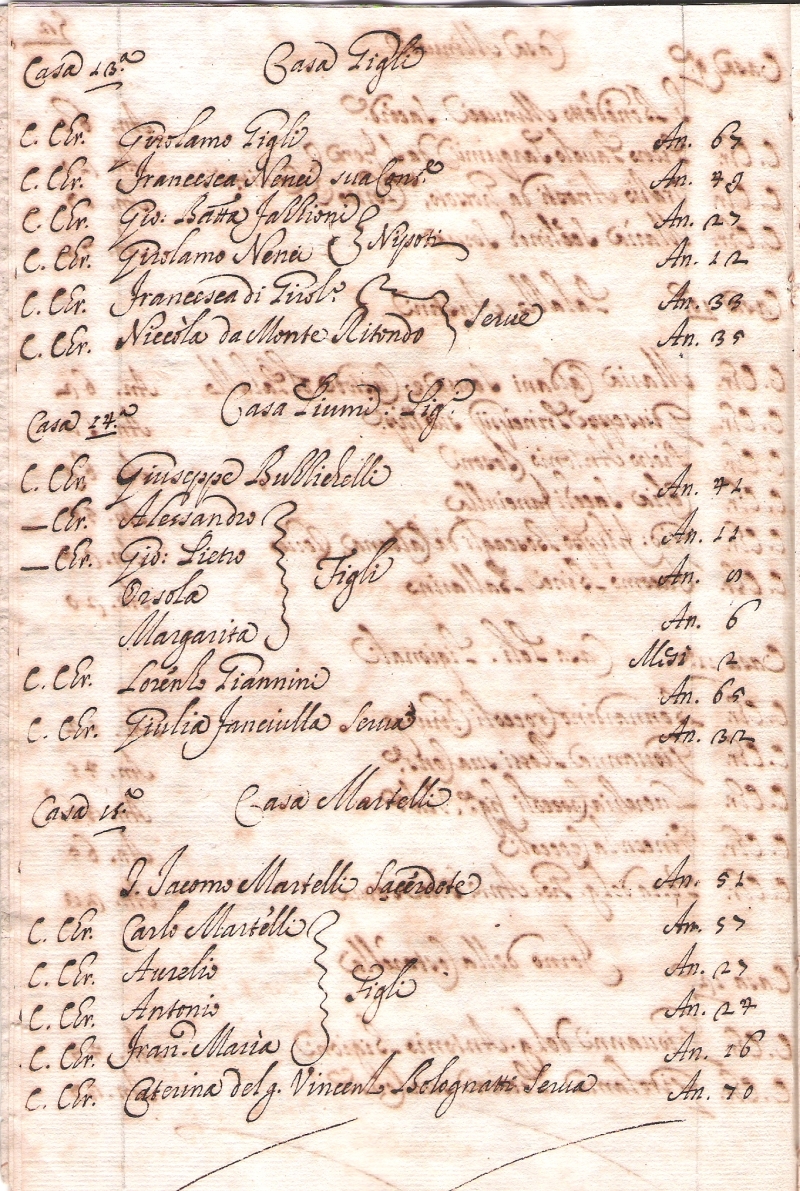 Casa 13.a Casa Gigli
C. Chr. Girolamo Gigli An. 67
C. Chr. Francesca Nenci sua Cons.e An. 49
C. Chr. Gio: Batta Fallioni An. 27
C. Chr. Girolamo Nenci Nipoti An. 12
C. Chr. Francesca di Girol.o An. 33
C. Chr. Niccola da Monte Ritondo Serve An. 35
Casa 14.a Casa
C. Chr. Giuseppe Bublichelli An. 41
— Chr. Alessandro An. 11
— Chr. Gio: Pietro Figli An.
Orsola An. 6
Margarita Mesi 2
C. Chr. Lorenzo Giannini An. 65
C. Chr. Giulia Fanciulla Serva An. 32
Casa 15.a Casa Martelli
Jacomo Martelli Sacerdote An. 51
C. Chr. Carlo Martelli An. 57
C. Chr. Aurelio An. 27
C. Chr. Antonio Figli An. 24
C. Chr. Fran.o Maria An. 16
C. Chr. Caterina del q. Vincenzo Bolognatti Serva An. 70